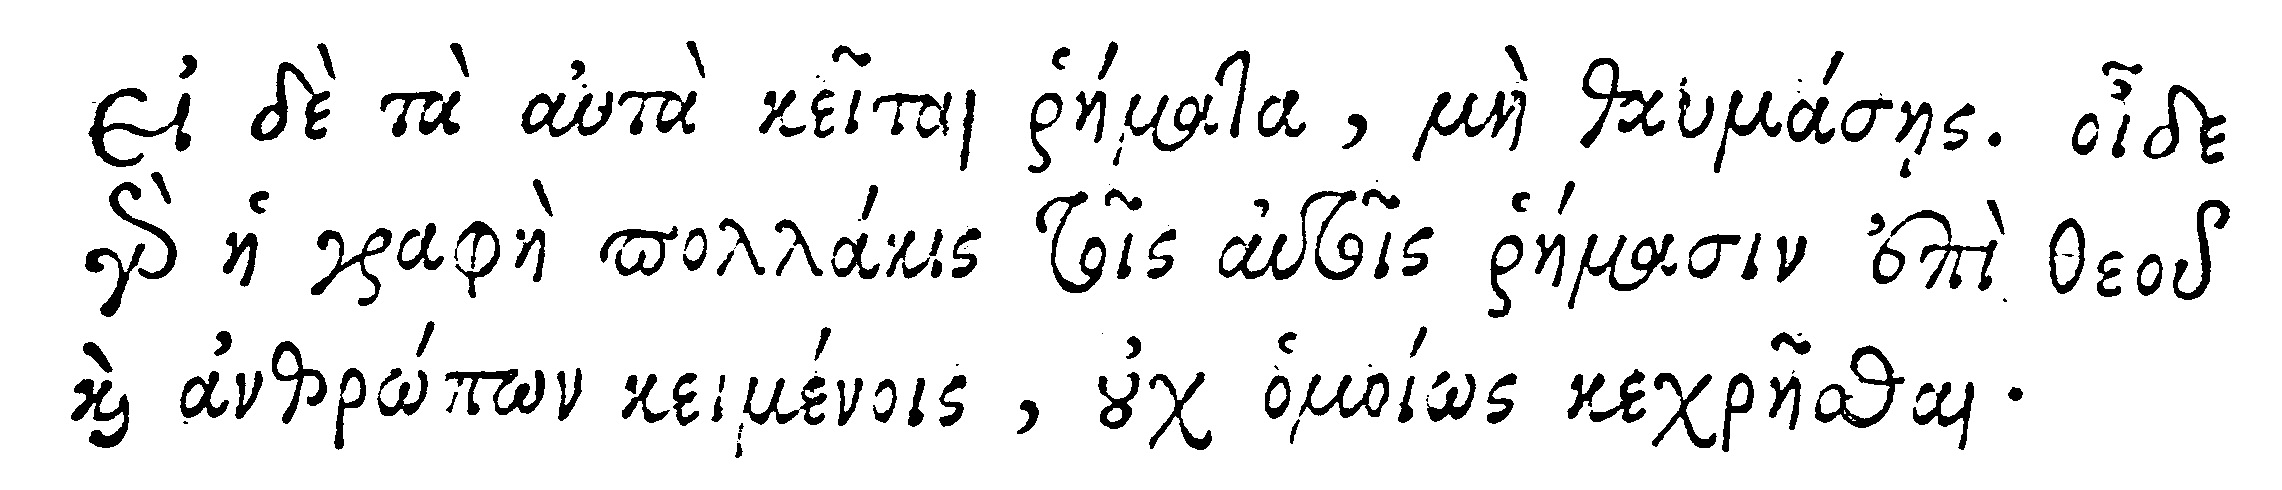 Εἰ δὲ τὰ αὐτὰ κεῖται ῥήματα, μὴ θαυμάσῃς. οἶδε
γὰρ ἡ γραφὴ πολλάκις τοῖς αὐτοῖς ῥήμασιν ἐπὶ θεοῦ
καὶ ἀνθρώπων κειμένοις, οὐχ ὁμοίως κεχρῆσθαι.